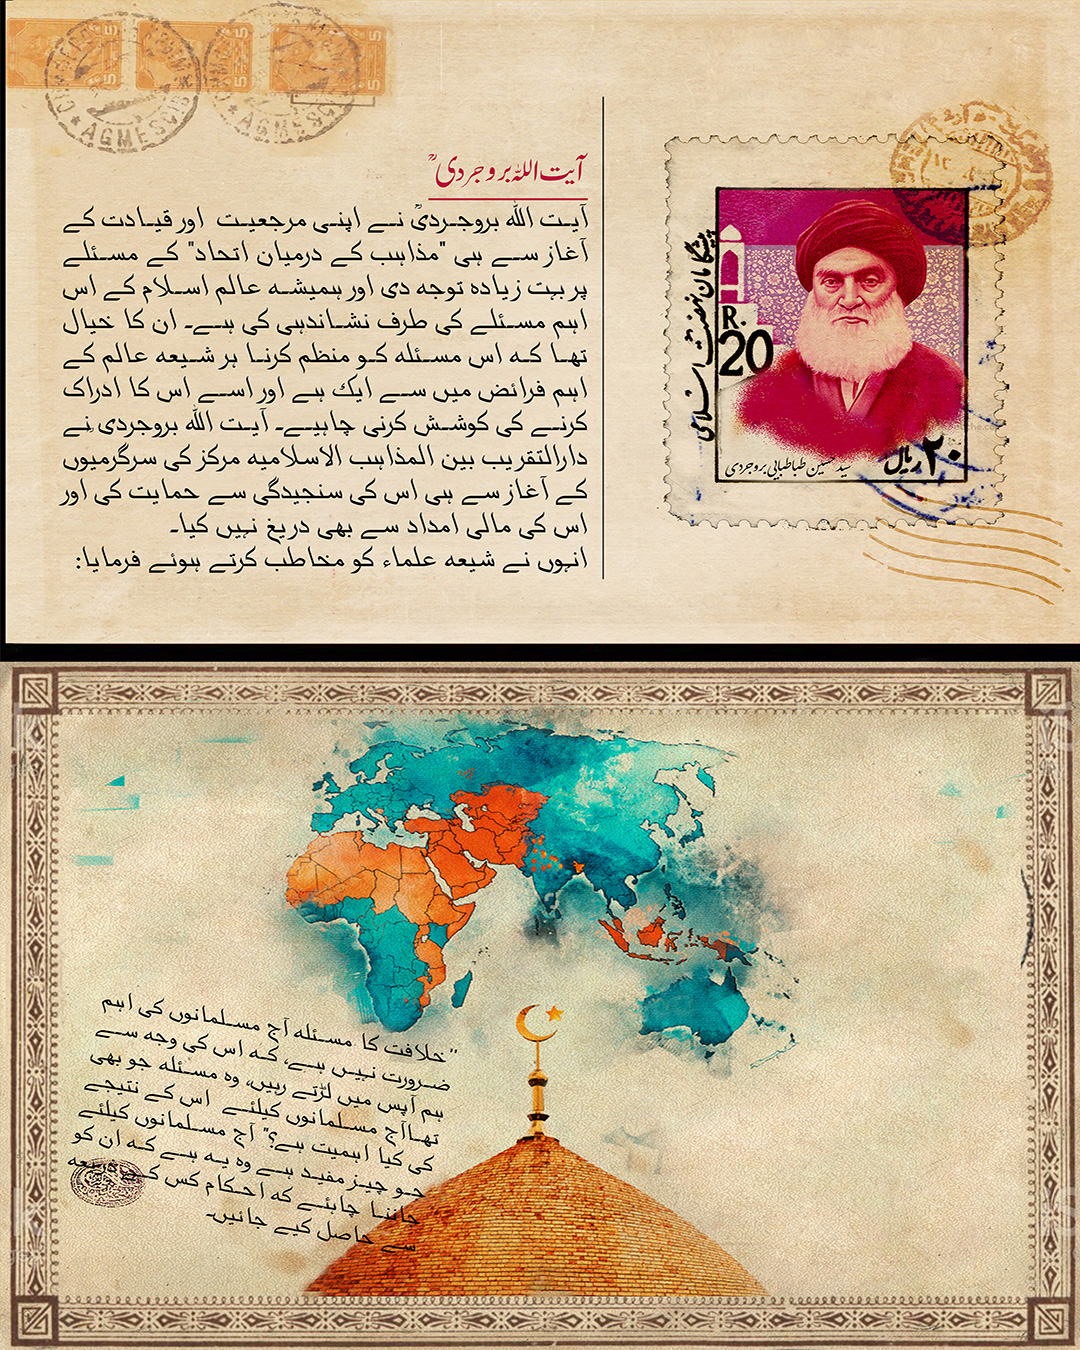 5
5
5
AGMESCID
AGMESCID
آیت اللہ بروجردیؒ
آیت اللہ بروجردیؒ نے اپنی مرجعیت اور قیادت کے
آغاز سے ہی "مذاہب کے درمیان اتحاد" کے مسئلے
پر بہت زیادہ توجہ دی اور ہمیشہ عالم اسلام کے اس
اہم مسئلے کی طرف نشاندہی کی ہے۔ ان کا خیال
تھا کہ اس مسئلہ کو منظم کرنا ہر شیعہ عالم کے
اہم فرائض میں سے ایک ہے اور اسے اس کا ادراک
کرنے کی کوشش کرنی چاہیے۔ آیت اللہ بروجردی نے
دارالتقریب بین المذاہب الاسلامیہ مرکز کی سرگرمیوں
کے آغاز سے ہی اس کی سنجیدگی سے حمایت کی اور
اس کی مالی امداد سے بھی دریغ نہیں کیا۔
انہوں نے شیعہ علماء کو مخاطب کرتے ہوئے فرمایا:
پیشگامان نهضت اسلامی
R.
20
۲۰ ریال
سید حسین طباطبایی بروجردی
"خلافت کا مسئلہ آج مسلمانوں کی اہم
ضرورت نہیں ہے، کہ اس کی وجہ سے
ہم آپس میں لڑتے رہیں، وہ مسئلہ جو بھی
تھاآج مسلمانوں کیلئے اس کے نتیجے
کی کیا اہمیت ہے؟" آج مسلمانوں کیلئے
جو چیز مفید ہے وہ یہ ہے کہ ان کو
جاننا چاہئے کہ احکام کس کے ذریعہ
سے حاصل کیے جائیں۔